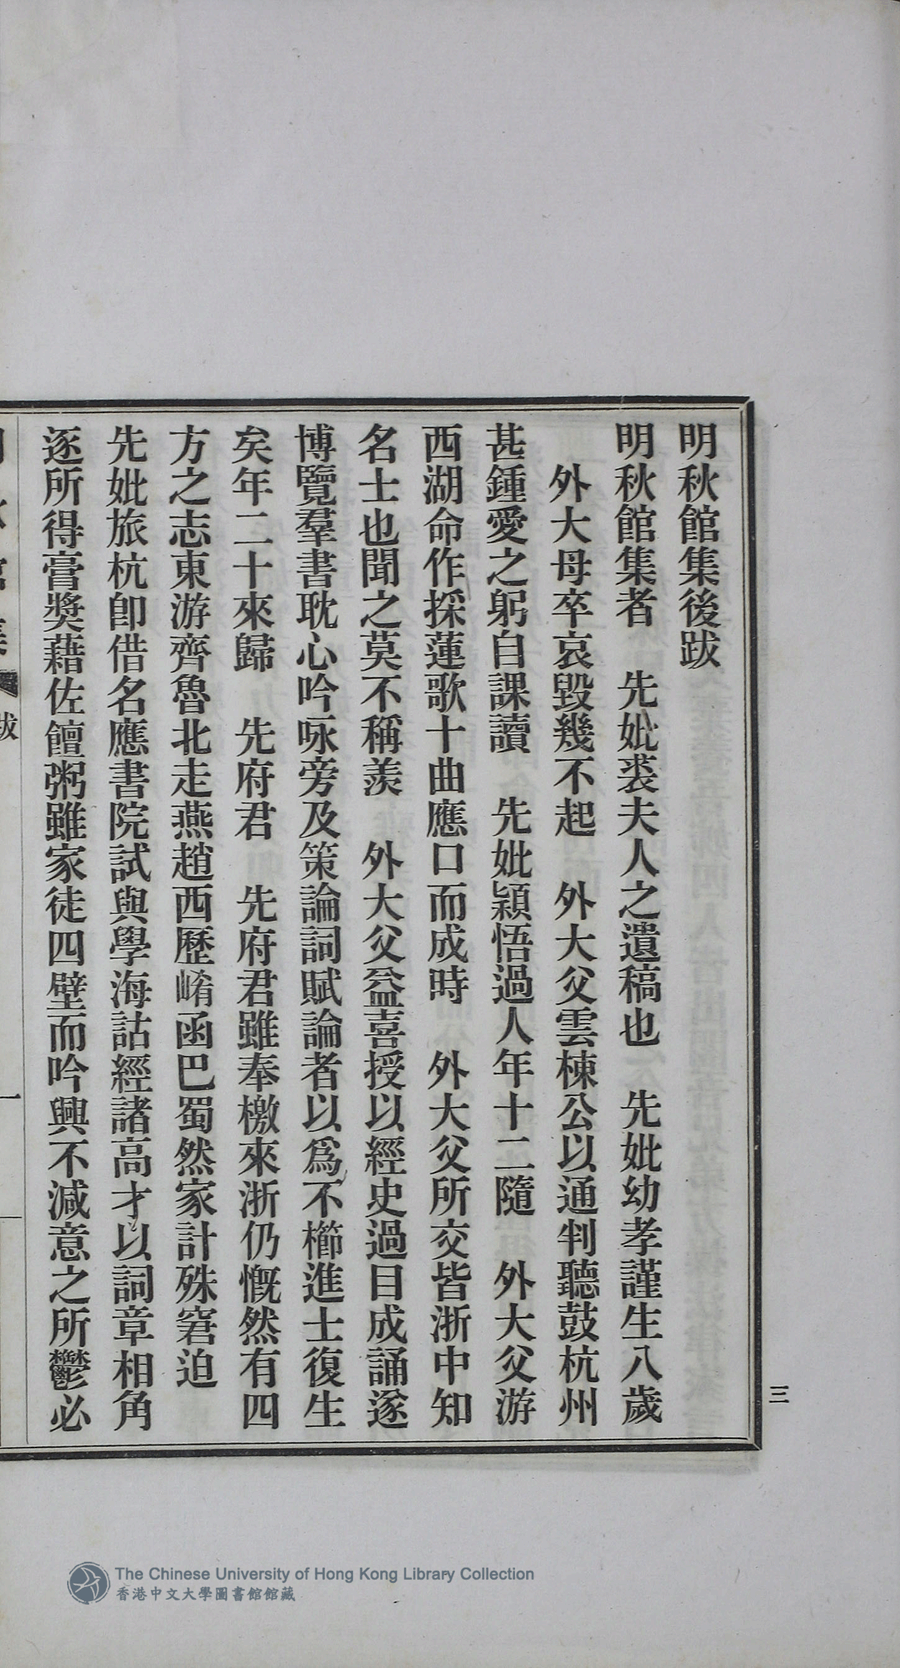 明秋館集後跋
明秋館集者　先妣裘夫人之遺稿也　先妣幼孝謹生八歲
外大母卒哀毀幾不起　外大父雲棟公以通判聽鼓杭州
甚鍾愛之躬自課讀　先妣穎悟過人年十二隨　外大父游
西湖命作採蓮歌十曲應口而成時　外大父所交皆浙中知
名士也聞之莫不稱羨　外大父益喜授以經史過目成誦遂
博覽羣書耽心吟咏旁及策論詞賦論者以爲不櫛進士復生
矣年二十來歸　先府君　先府君雖奉檄來浙仍慨然有四
方之志東游齊魯北走燕趙西歷崤函巴蜀然家計殊窘迫
先妣旅杭卽借名應書院試與學海詁經諸高才以詞章相角
逐所得膏獎藉佐饘粥雖家徒四壁而吟興不減意之所鬱必
跋
一
三
The Chinese University of Hong Kong Library Collection
香港中文大學圖書館館藏